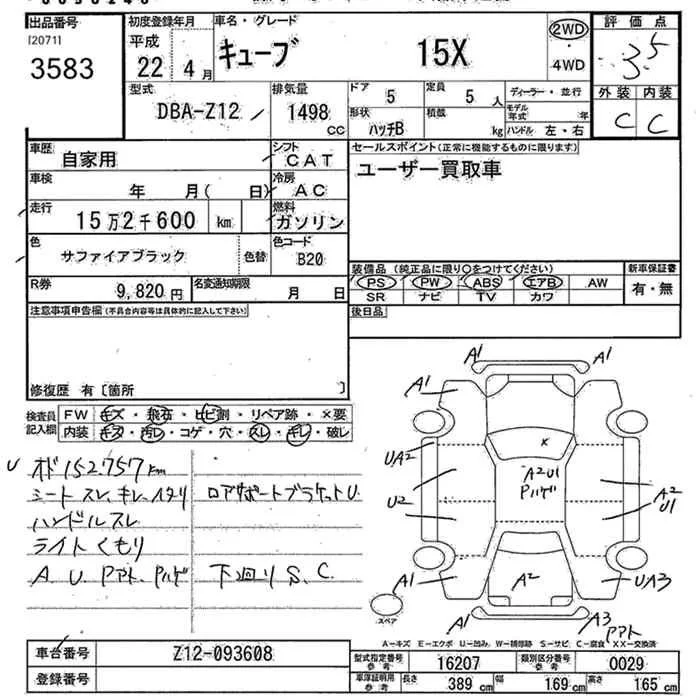 出品番号 初度登録年月 車名・グレード 2WD 評価点
I20711 平成 キューブ 15X ・ 3.5
3583 22年 4月 4WD
型式 排気量 ドア 5 定員 5人 ディーラー・並行 外装 内装
DBA-Z12 1498cc 形状 ハッチB 積載 kg モデル年式 年 C C
ハンドル 左・右
車歴 自家用 シフト CAT セールスポイント(正常に機能するものに限ります)
車検 年 月(日) 冷房 AC ユーザー買取車
走行 15万2千600 km 燃料 ガソリン
色 サファイアブラック 色替 色コード B20
装備品 (純正品に限り○をつけてください) 新車保証書
R券 9,820円 名変通知期限 月 日 PS PW ABS エアB AW 有・無
SR ナビ TV カワ
注意事項申告欄(不具合内容等は具体的に記入して下さい) 後日品
修復歴 有〔箇所 〕
検査員記入欄 FW キズ・飛石・ヒビ割・リペア跡・×要
内装 キズ・汚レ・コゲ・穴・スレ・キレ・破レ
152757km
シート スレ、キレ、イタリ ロアサポートブラケットU
ハンドルスレ
ライトくもり
A、U、Pアト、Pハゲ 下廻りS、C
A1 A1
A1 A1
UA2 A2U1
Pハゲ
U2 A2
U1
A1 A2 UA3
スペア A1 A3 Pアト
A-キズ E-エクボ U-凹み W-補修跡 S-サビ C-腐食 XX-交換済
車台番号 Z12-093608 型式指定番号 参考 16207 類別区分番号 参考 0029
登録番号 車庫証明用 参考 長さ 389cm 幅 169cm 高さ 165cm